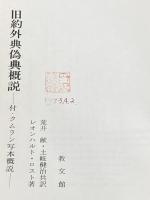 旧約外典偽典概説
―付・クムラン写本概説―
レオンハルト・ロスト著
荒井 献・土岐健治共訳
教文館